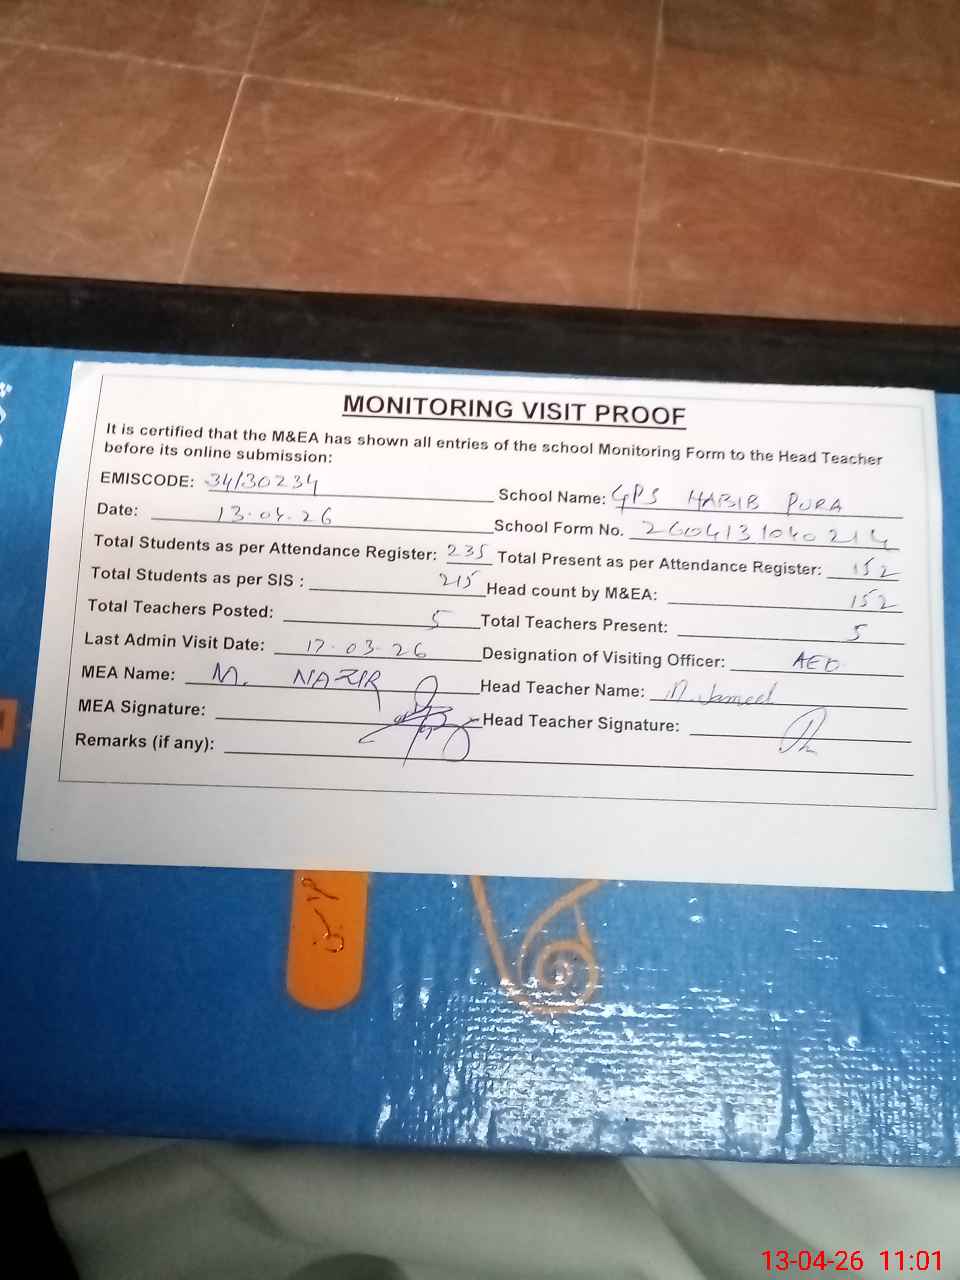 MONITORING VISIT PROOF
It is certified that the M&EA has shown all entries of the school Monitoring Form to the Head Teacher
before its online submission:
EMISCODE: 34130234 School Name: GPS HABIB PURA
Date: 13-04-26 School Form No. 2604131040214
Total Students as per Attendance Register: 235 Total Present as per Attendance Register: 152
Total Students as per SIS : 215 Head count by M&EA: 152
Total Teachers Posted: 5 Total Teachers Present: 5
Last Admin Visit Date: 17-03-26 Designation of Visiting Officer: AEO
MEA Name: M. NAZIR Head Teacher Name: M. Jameel
MEA Signature: Head Teacher Signature:
Remarks (if any):
13-04-26 11:01